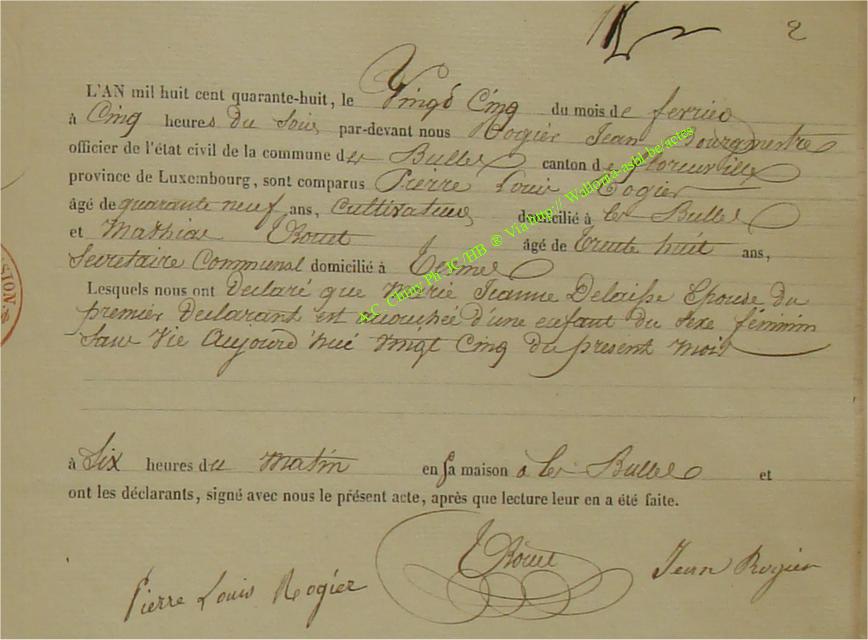 2
L'AN mil huit cent quarante-huit, le Vingt Cinq du mois de fevrier
à Cinq heures du Soir par-devant nous Rogier Jean Bourgmestre
officier de l'état civil de la commune de les Bulles canton de florenville
province de Luxembourg, sont comparus Pierre Louis Rogier
âgé de quarante neuf ans, Cultivateur domicilié à les Bulles
et Mathias Rouet âgé de trente huit ans,
Secretaire Communal domicilié à Termes
Lesquels nous ont Declaré que Marie Jeanne Delaisse Epouse du
premier Declarant est accouchée d'une enfant du Sexe féminin
Sans Vie Aujourd'hui Vingt Cinq du present mois
à Six heures du Matin en Sa maison à les Bulles et
ont les déclarants, signé avec nous le présent acte, après que lecture leur en a été faite.
Pierre Louis Rogier Rouet Jean Rogier
A.C. Chiny Ph JC/HB ® Via http:// Wallonia-asbl.be/actes
SION